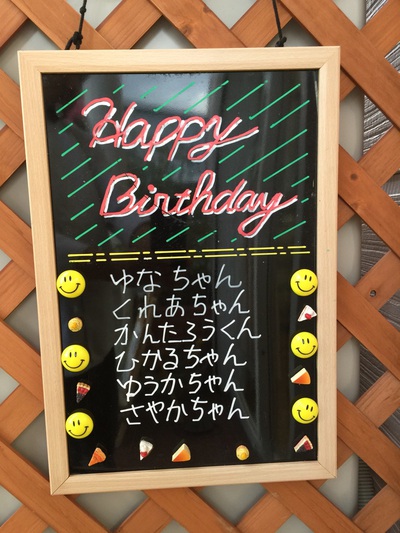 Happy
Birthday
ゆなちゃん
くれあちゃん
かんたろうくん
ひかるちゃん
ゆうかちゃん
さやかちゃん